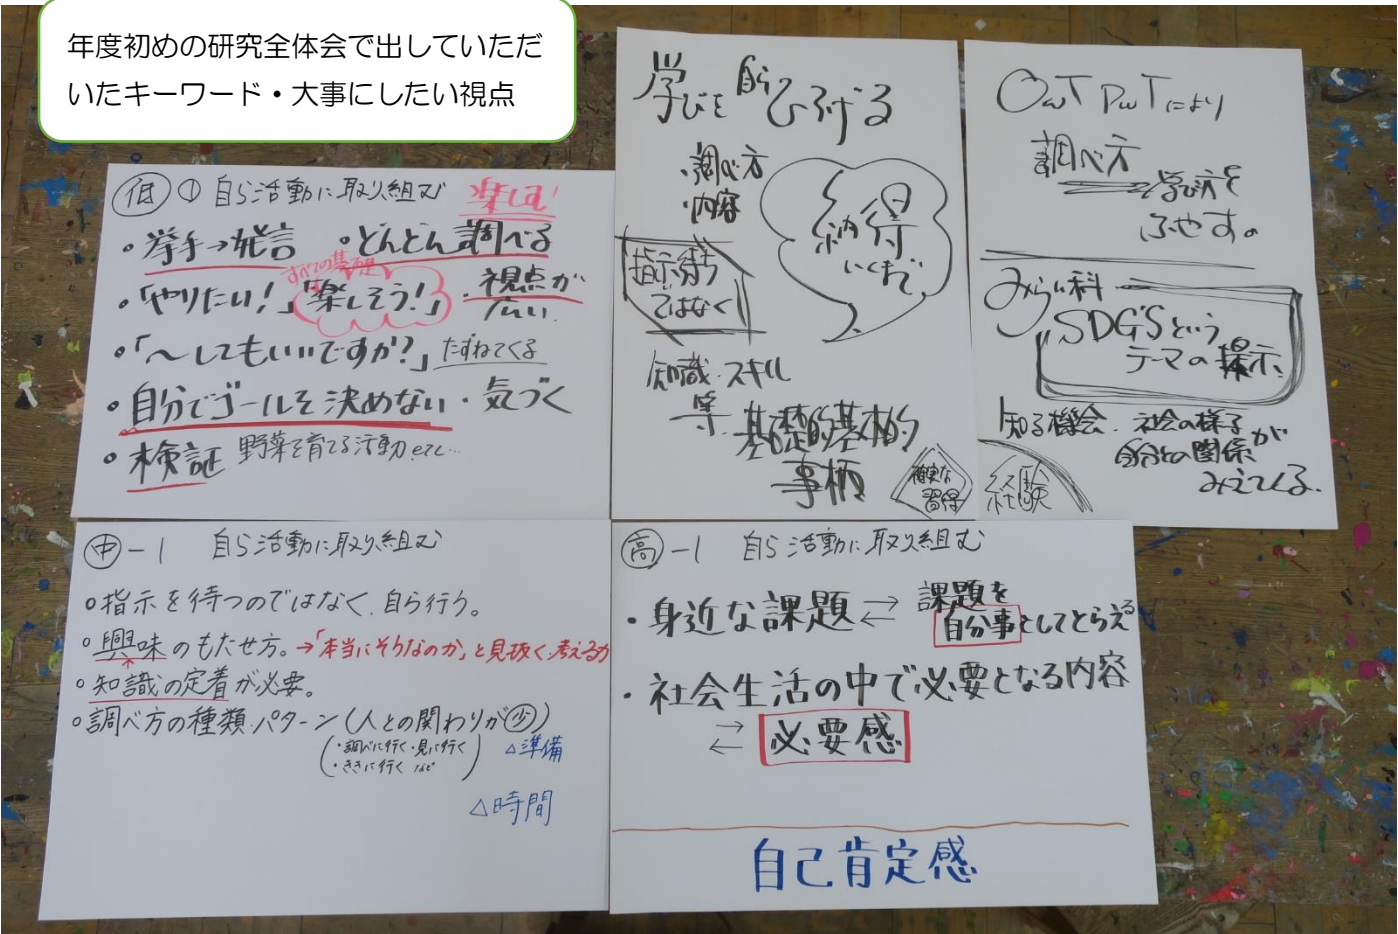 年度初めの研究全体会で出していただ
いたキーワード・大事にしたい視点
低 ① 自ら活動に取り組む 楽しむ
・挙手→発言 ・どんどん調べる
すべての基礎
・「やりたい！」「楽しそう！」 ・視点が
広い
・「～してもいいですか？」たずねてくる
・自分でゴールを決めない ・気づく
・検証 野菜を育てる活動 etc…
学びを自らひろげる
・調べ方
・内容
納得
いくまで
指示待ち
ではなく
知識・スキル
等 基礎的基本的
事柄
確実な
習得
OUTPUTにより
調べ方
学び方を
ふやす。
みらい科
SDGSという
テーマの提示
知る機会 社会の様子
自分との関係が
みえてくる.
経験
中-1 自ら活動に取り組む
・指示を待つのではなく、自ら行う。
・興味のもたせ方。→「本当にそうなのか」と見抜く・考える力
・知識の定着が必要。
・調べ方の種類・パターン(人との関わりが少)
(・調べに行く・見に行く
・ききに行く など)
△準備
△時間
高-1 自ら活動に取り組む
・身近な課題 ⇄ 課題を
自分事としてとらえる
・社会生活の中で必要となる内容
⇄ 必要感
自己肯定感